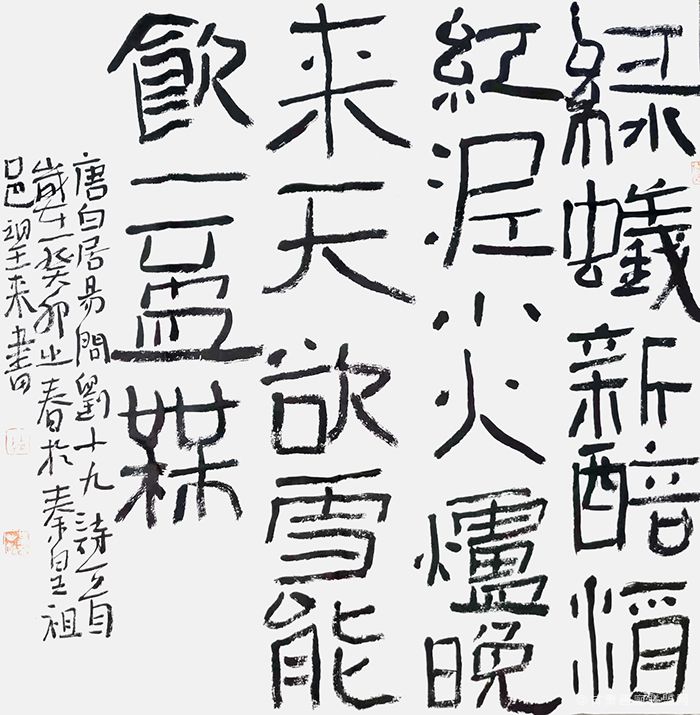 綠蟻新醅酒
紅泥小火爐晚
来天欲雪能
飲一盃無
唐白居易問劉十九詩一首
歲在癸卯之春於秦皇祖
邑来書